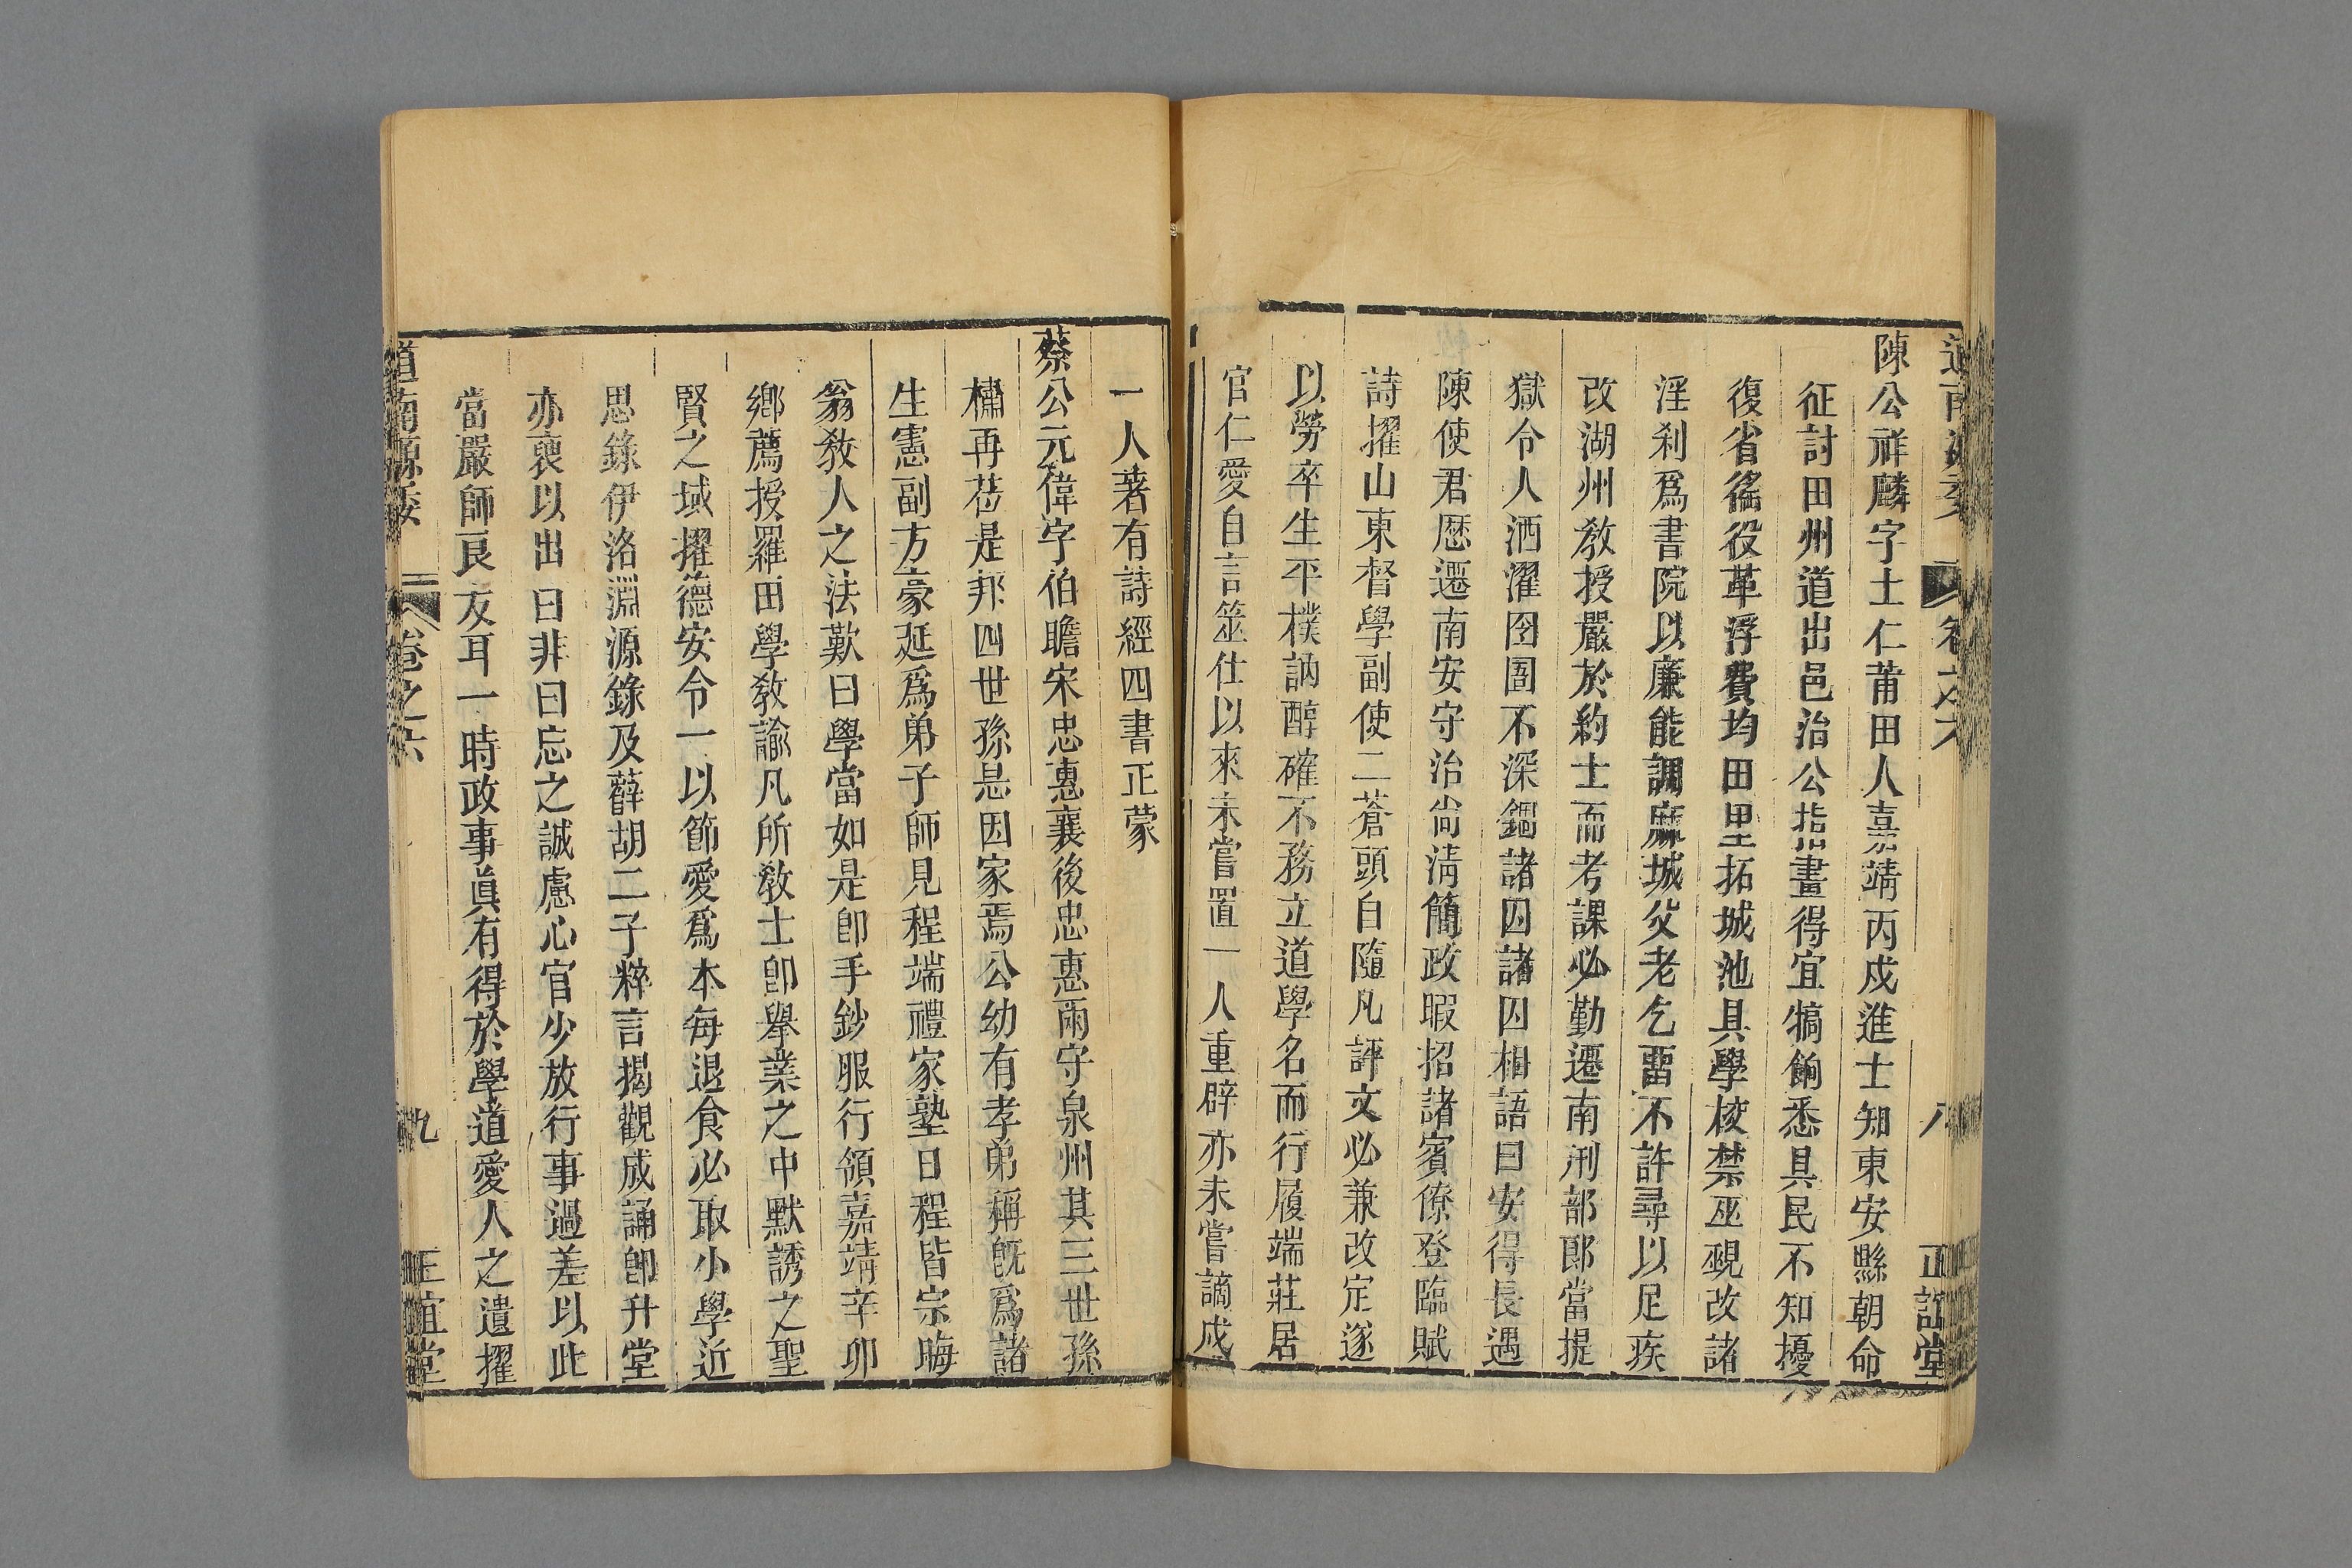 陳公祥麟字士仁莆田人嘉靖丙戍進士知東安縣朝命
征討田州道出邑治公指畫得宜犒餉悉具民不知擾
復省徭役革浮費均田里拓城池具學校禁巫覡改諸
淫刹爲書院以廉能調麻城父老乞畱不許尋以足疾
改湖州敎授嚴於約士而考課必勤遷南刑部郎當提
獄令人洒濯囹圄不深錮諸囚諸囚相語曰安得長遇
陳使君歷遷南安守治尙淸簡政暇招諸賓僚登臨賦
詩擢山東督學副使二蒼頭自隨凡評文必兼改定遂
以勞卒生平樸訥醇確不務立道學名而行履端莊居
官仁愛自言筮仕以來未嘗置一人重辟亦未嘗謫戍
道南源委 卷之六 八 正誼堂
一人著有詩經四書正蒙
蔡公元偉字伯瞻宋忠惠襄後忠惠兩守泉州其三世孫
橚再蒞是邦四世孫恳因家焉公幼有孝弟稱旣爲諸
生憲副方豪延爲弟子師見程端禮家塾日程皆宗晦
翁敎人之法歎曰學當如是卽手鈔服行領嘉靖辛卯
鄉薦授羅田學敎諭凡所敎士卽舉業之中默誘之聖
賢之域擢德安令一以節愛爲本每退食必取小學近
思錄伊洛淵源錄及薛胡二子粹言揭觀成誦卽升堂
亦褏以出曰非曰忘之誠慮心官少放行事過差以此
當嚴師良友耳一時政事眞有得於學道愛人之遺擢
道南源委 卷之六 九 正誼堂